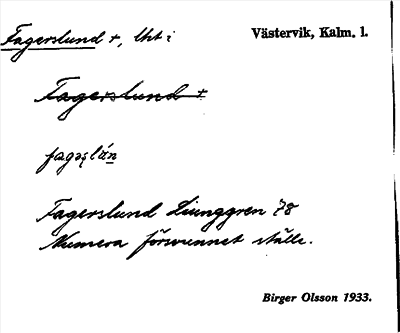 Fagerslund +, lht i Västervik, Kalm. l.
Fagerslund +
Fagerslund Ljunggren 78
Numera försvunnet ställe.
Birger Olsson 1933.